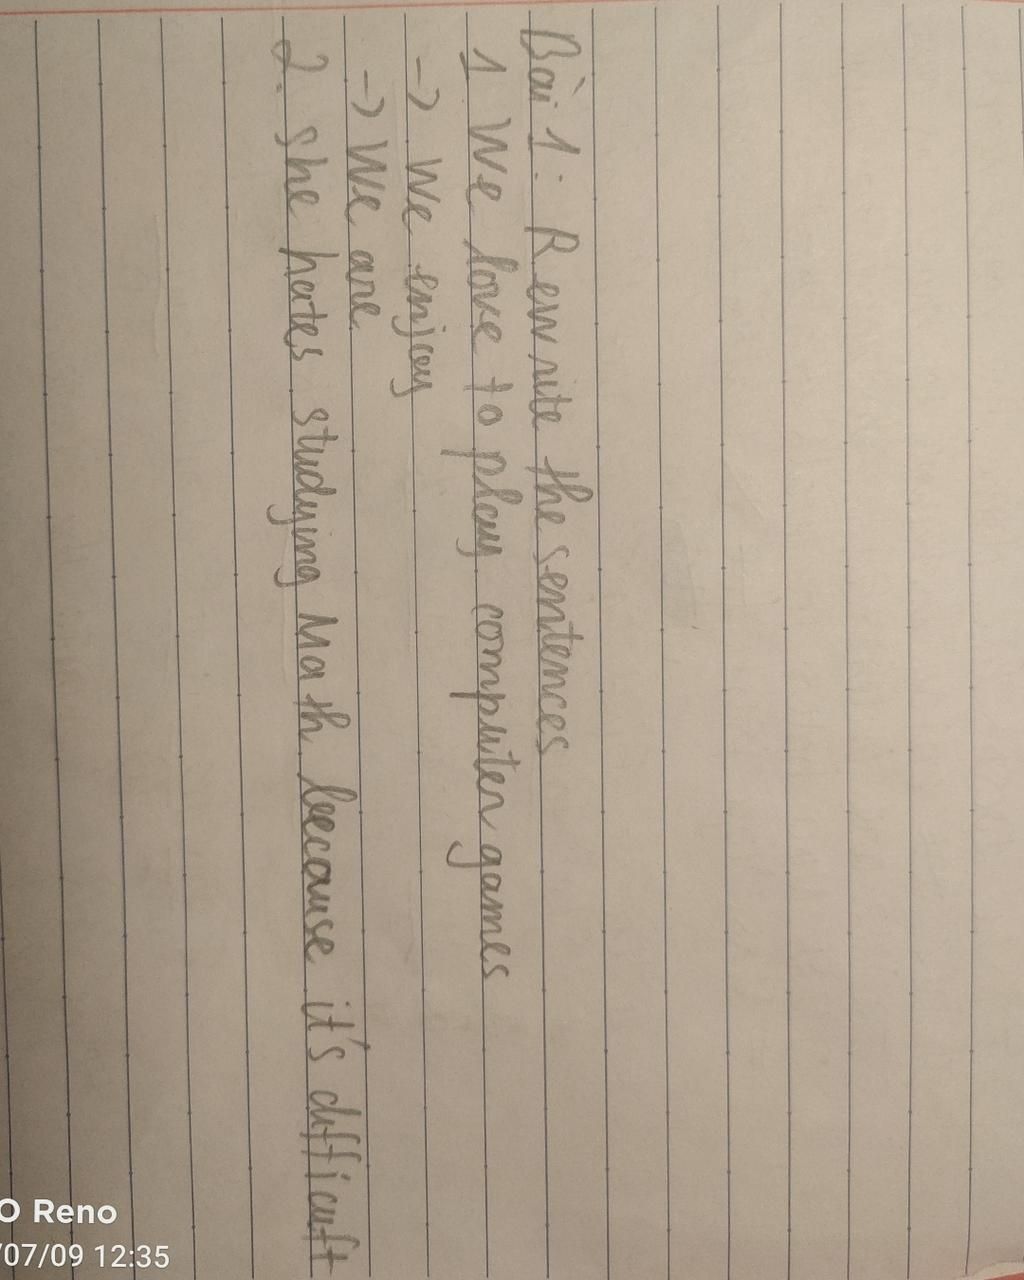 Bài 1: Rewrite the sentences
1 We love to play computer games
-> We enjoy
-> We are
2. she hates studying Math because it's difficult
O Reno
/07/09 12:35